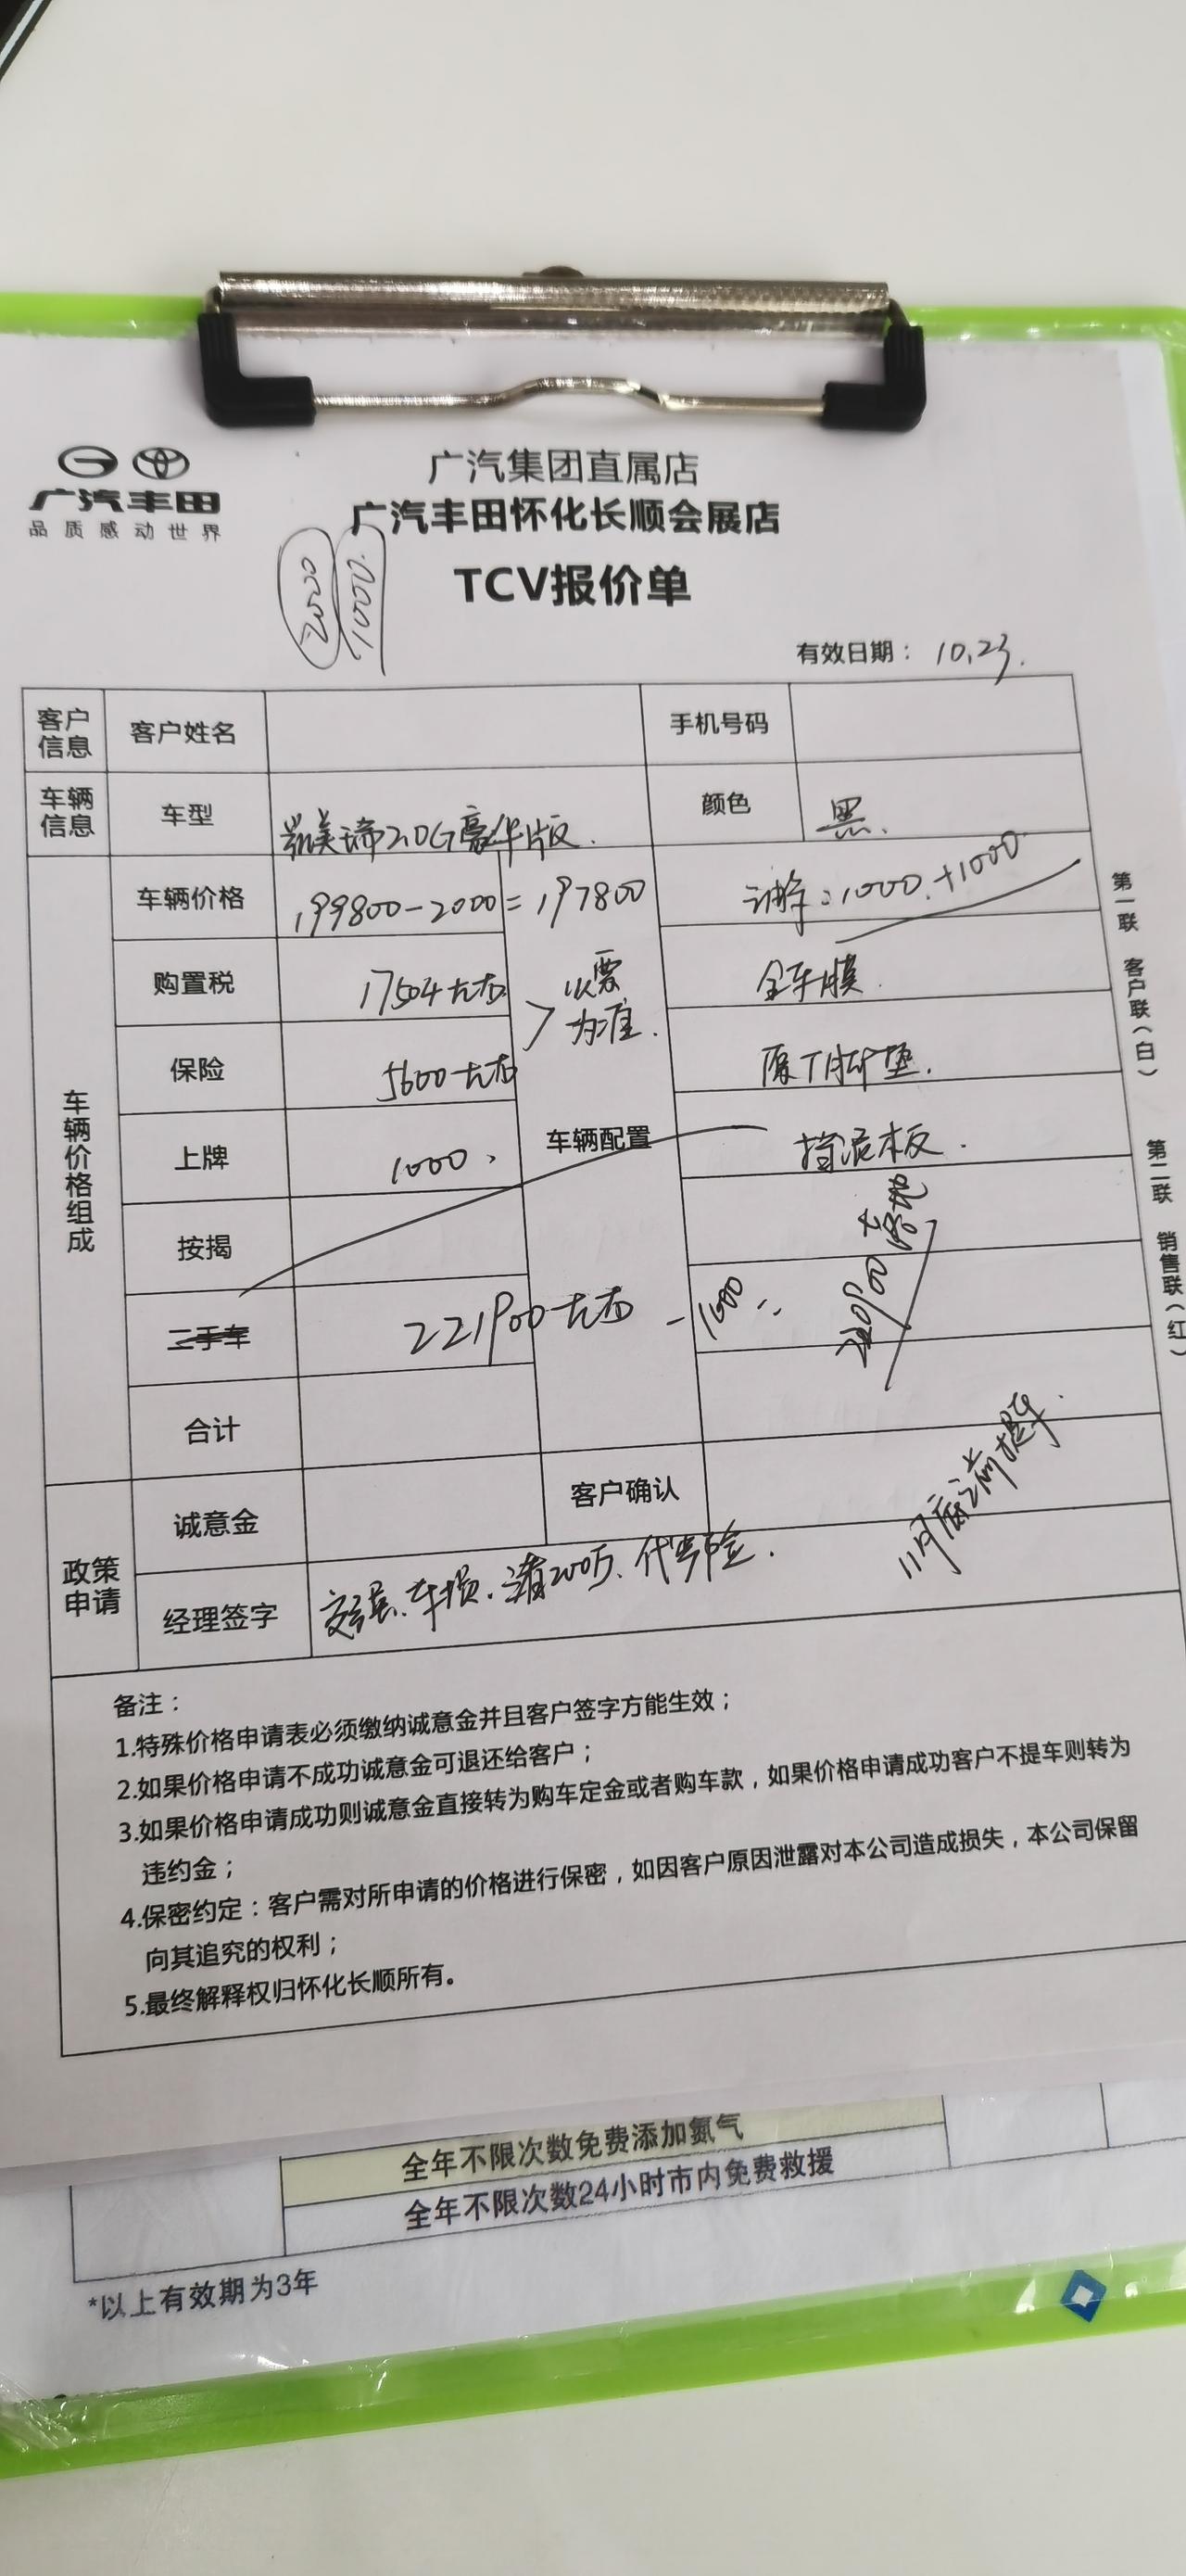 广汽丰田
品质感动世界
广汽集团直属店
广汽丰田怀化长顺会展店
TCV报价单
2000
1000.
有效日期： 10.23.
客户信息 客户姓名 手机号码
车辆信息 车型 凯美瑞2.0G豪华版. 颜色 黑.
车辆价格组成
车辆价格 199800-2000=197800 :1000.+1000
购置税 17504左右 以票为准. 全车膜.
保险 5600左右 原厂脚垫.
上牌 1000. 车辆配置 挡泥板.
按揭
二手车 221900左右 -1000 220900 落地
合计
11月底之前提车.
政策申请
诚意金 客户确认
经理签字 交强.车损.三者200万.代步险.
备注：
1.特殊价格申请表必须缴纳诚意金并且客户签字方能生效；
2.如果价格申请不成功诚意金可退还给客户；
3.如果价格申请成功则诚意金直接转为购车定金或者购车款，如果价格申请成功客户不提车则转为
违约金；
4.保密约定：客户需对所申请的价格进行保密，如因客户原因泄露对本公司造成损失，本公司保留
向其追究的权利；
5.最终解释权归怀化长顺所有。
第一联 客户联（白）
第二联 销售联（红）
全年不限次数免费添加氮气
全年不限次数24小时市内免费救援
*以上有效期为3年